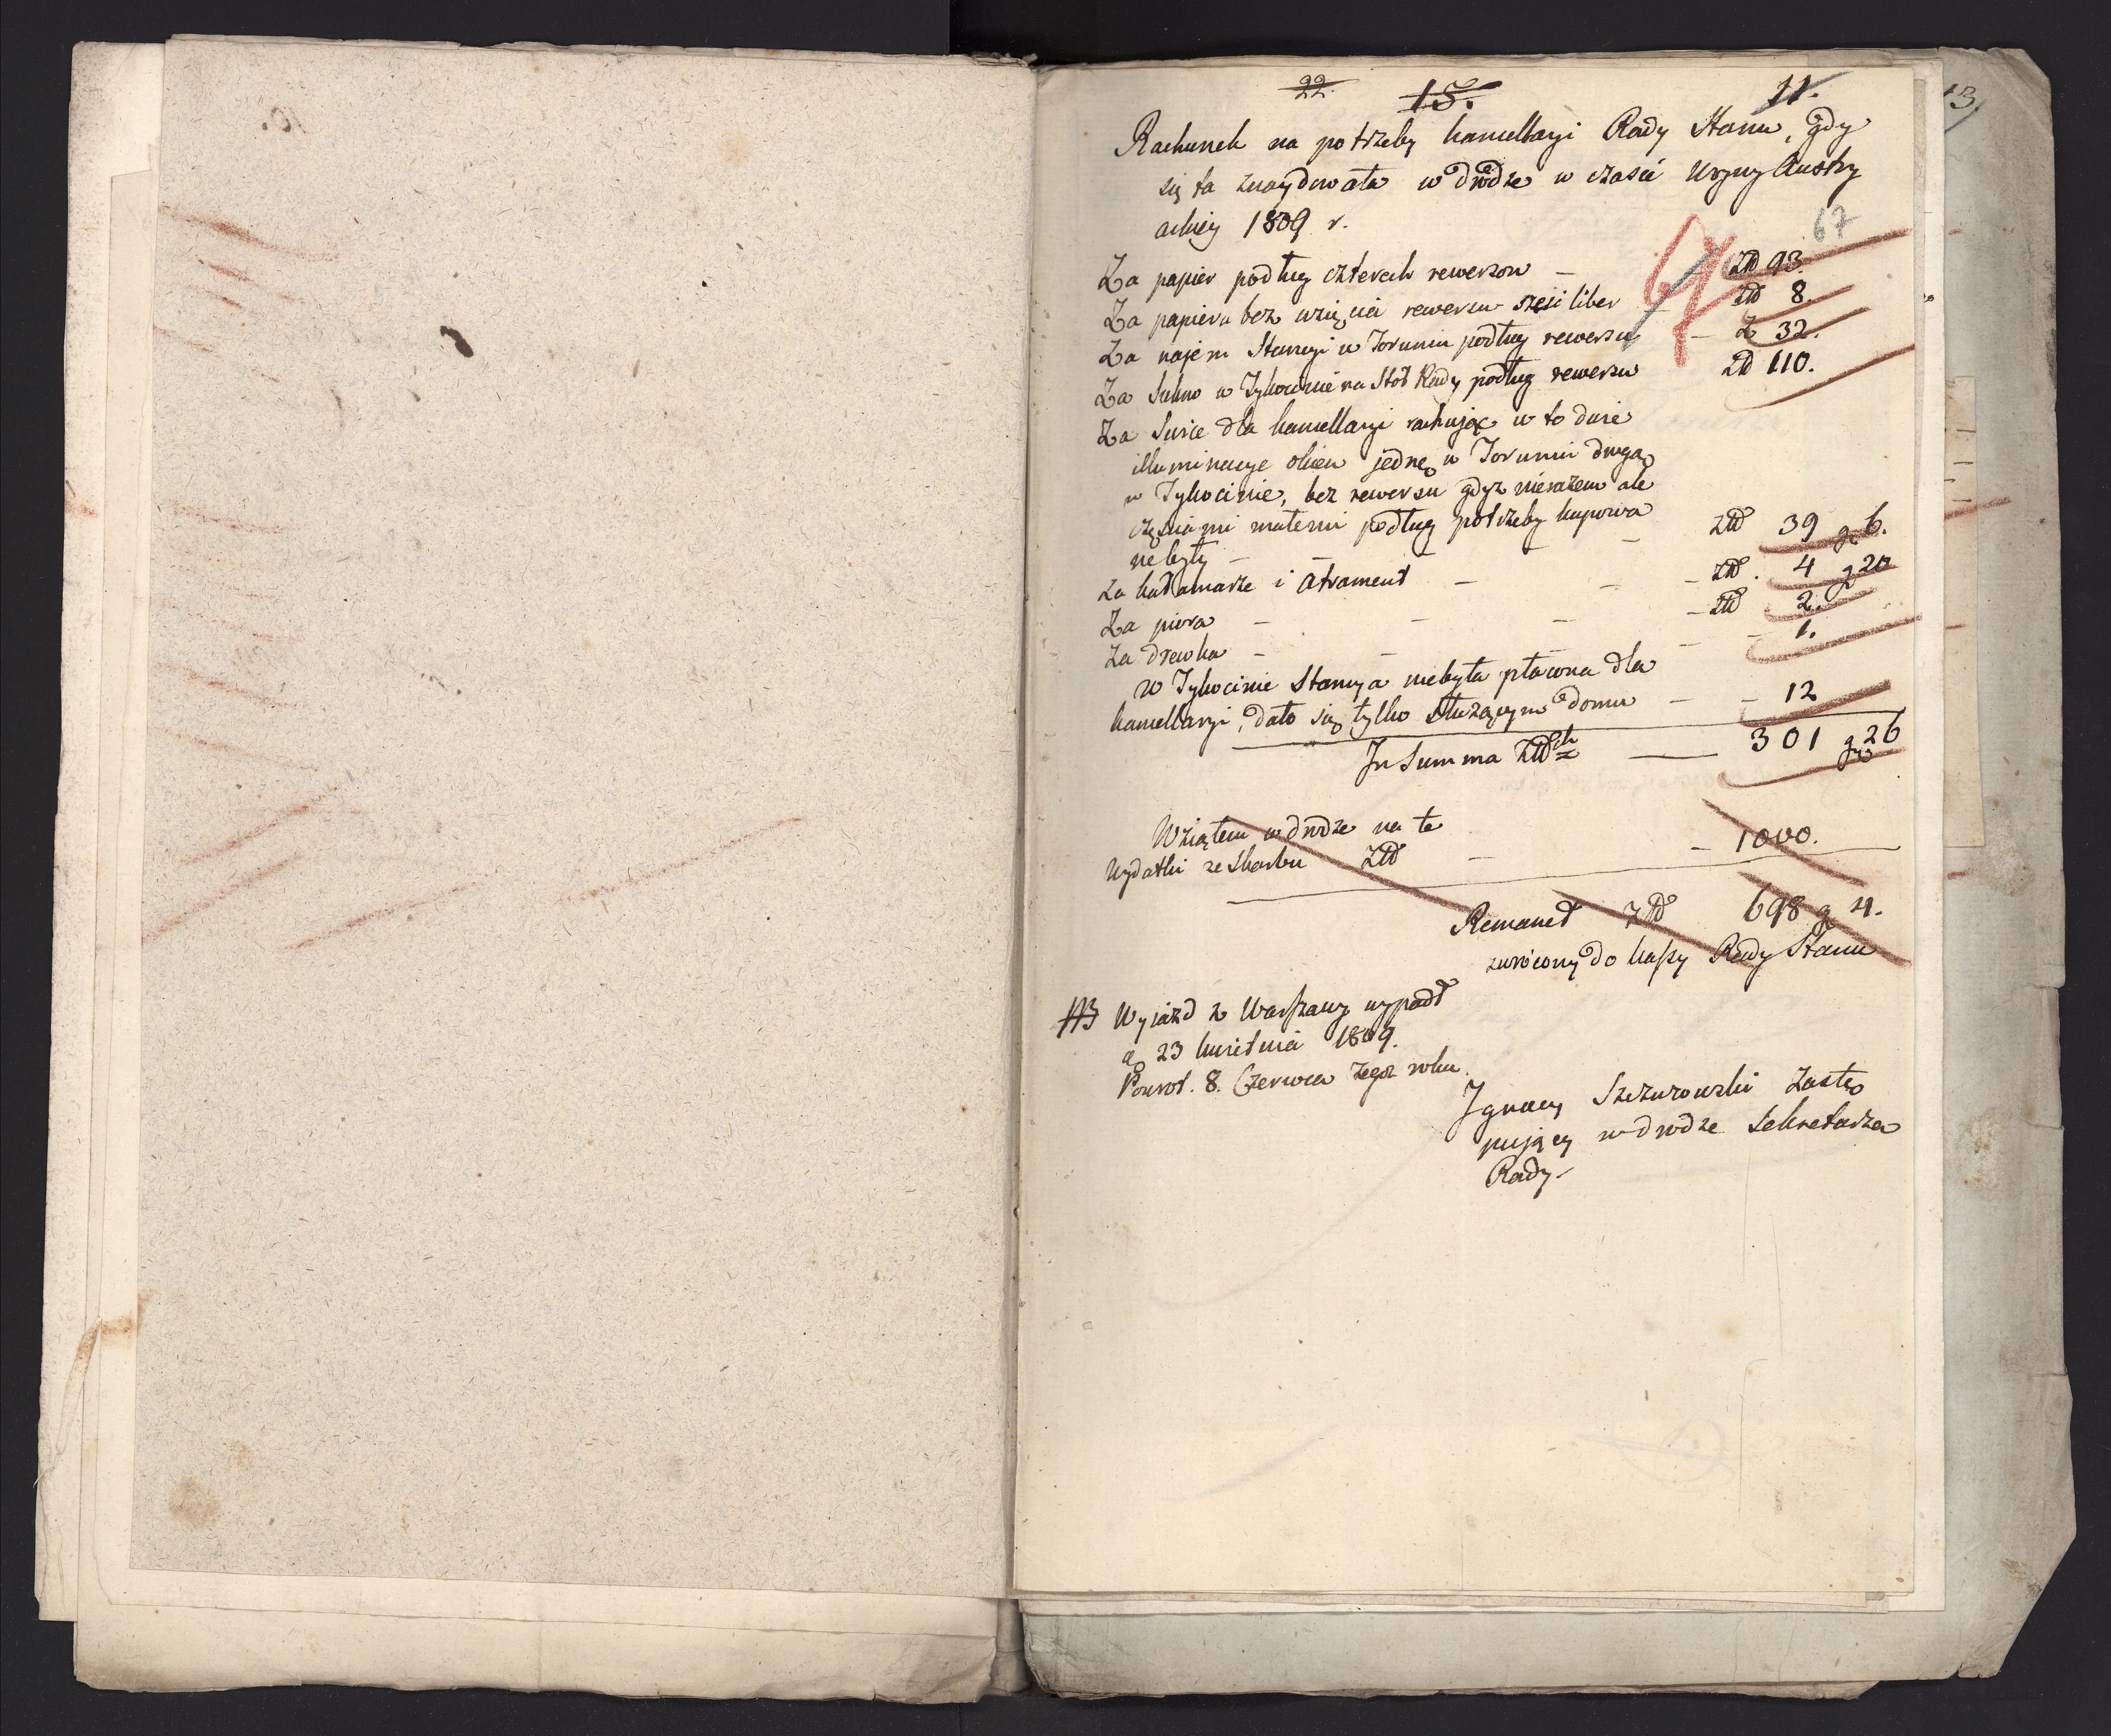 22. 15. 11.
Rachunek na potrzeby kancellaryi Rady Stanu, gdy
się ta znaydowała w drodze w czasie woyny Austry
ackiey 1809 r.
67
Za papier podług czterech rewersow — Złł 93.
Za papier u bez wzięcia rewersu sześć liber — złł 8.
Za najem Stancyi w Toruniu podług rewersu — Z 32.
Za Sukno w Tykocinie na Stół Rady podług rewersu złł 110.
Za świce dla kancellaryi rachując w to dwie
illuminacye okien jednę w Toruniu drugą
w Tykocinie, bez rewersu gdyż nierazem ale
częściami małemi podług potrzeby kupowa
ne były — — złł 39 gr 6.
Za kałamarze i atrament — — — złł. 4 g 20
Za piora — — — — złł 2.
Za drewka — — — — 1.
W Tykocinie Stancya niebyła płacona dla
kancellaryi, dało się tylko służącym domu — — 12
In Summa Złłch — 301 gr 26
Wziąłem w drodze na te
wydatki ze Skarbu Złł — — 1000.
Remanet Złł 698 g 4.
zwrócony do kassy Rady Stanu
NB Wyjazd z Warszawy wypadł
23 kwietnia 1809.
Powrot. 8. Czerwca tegoż roku.
Ignacy Szczurowski Zastę
pujący w drodze Sekretarza
Rady.
13